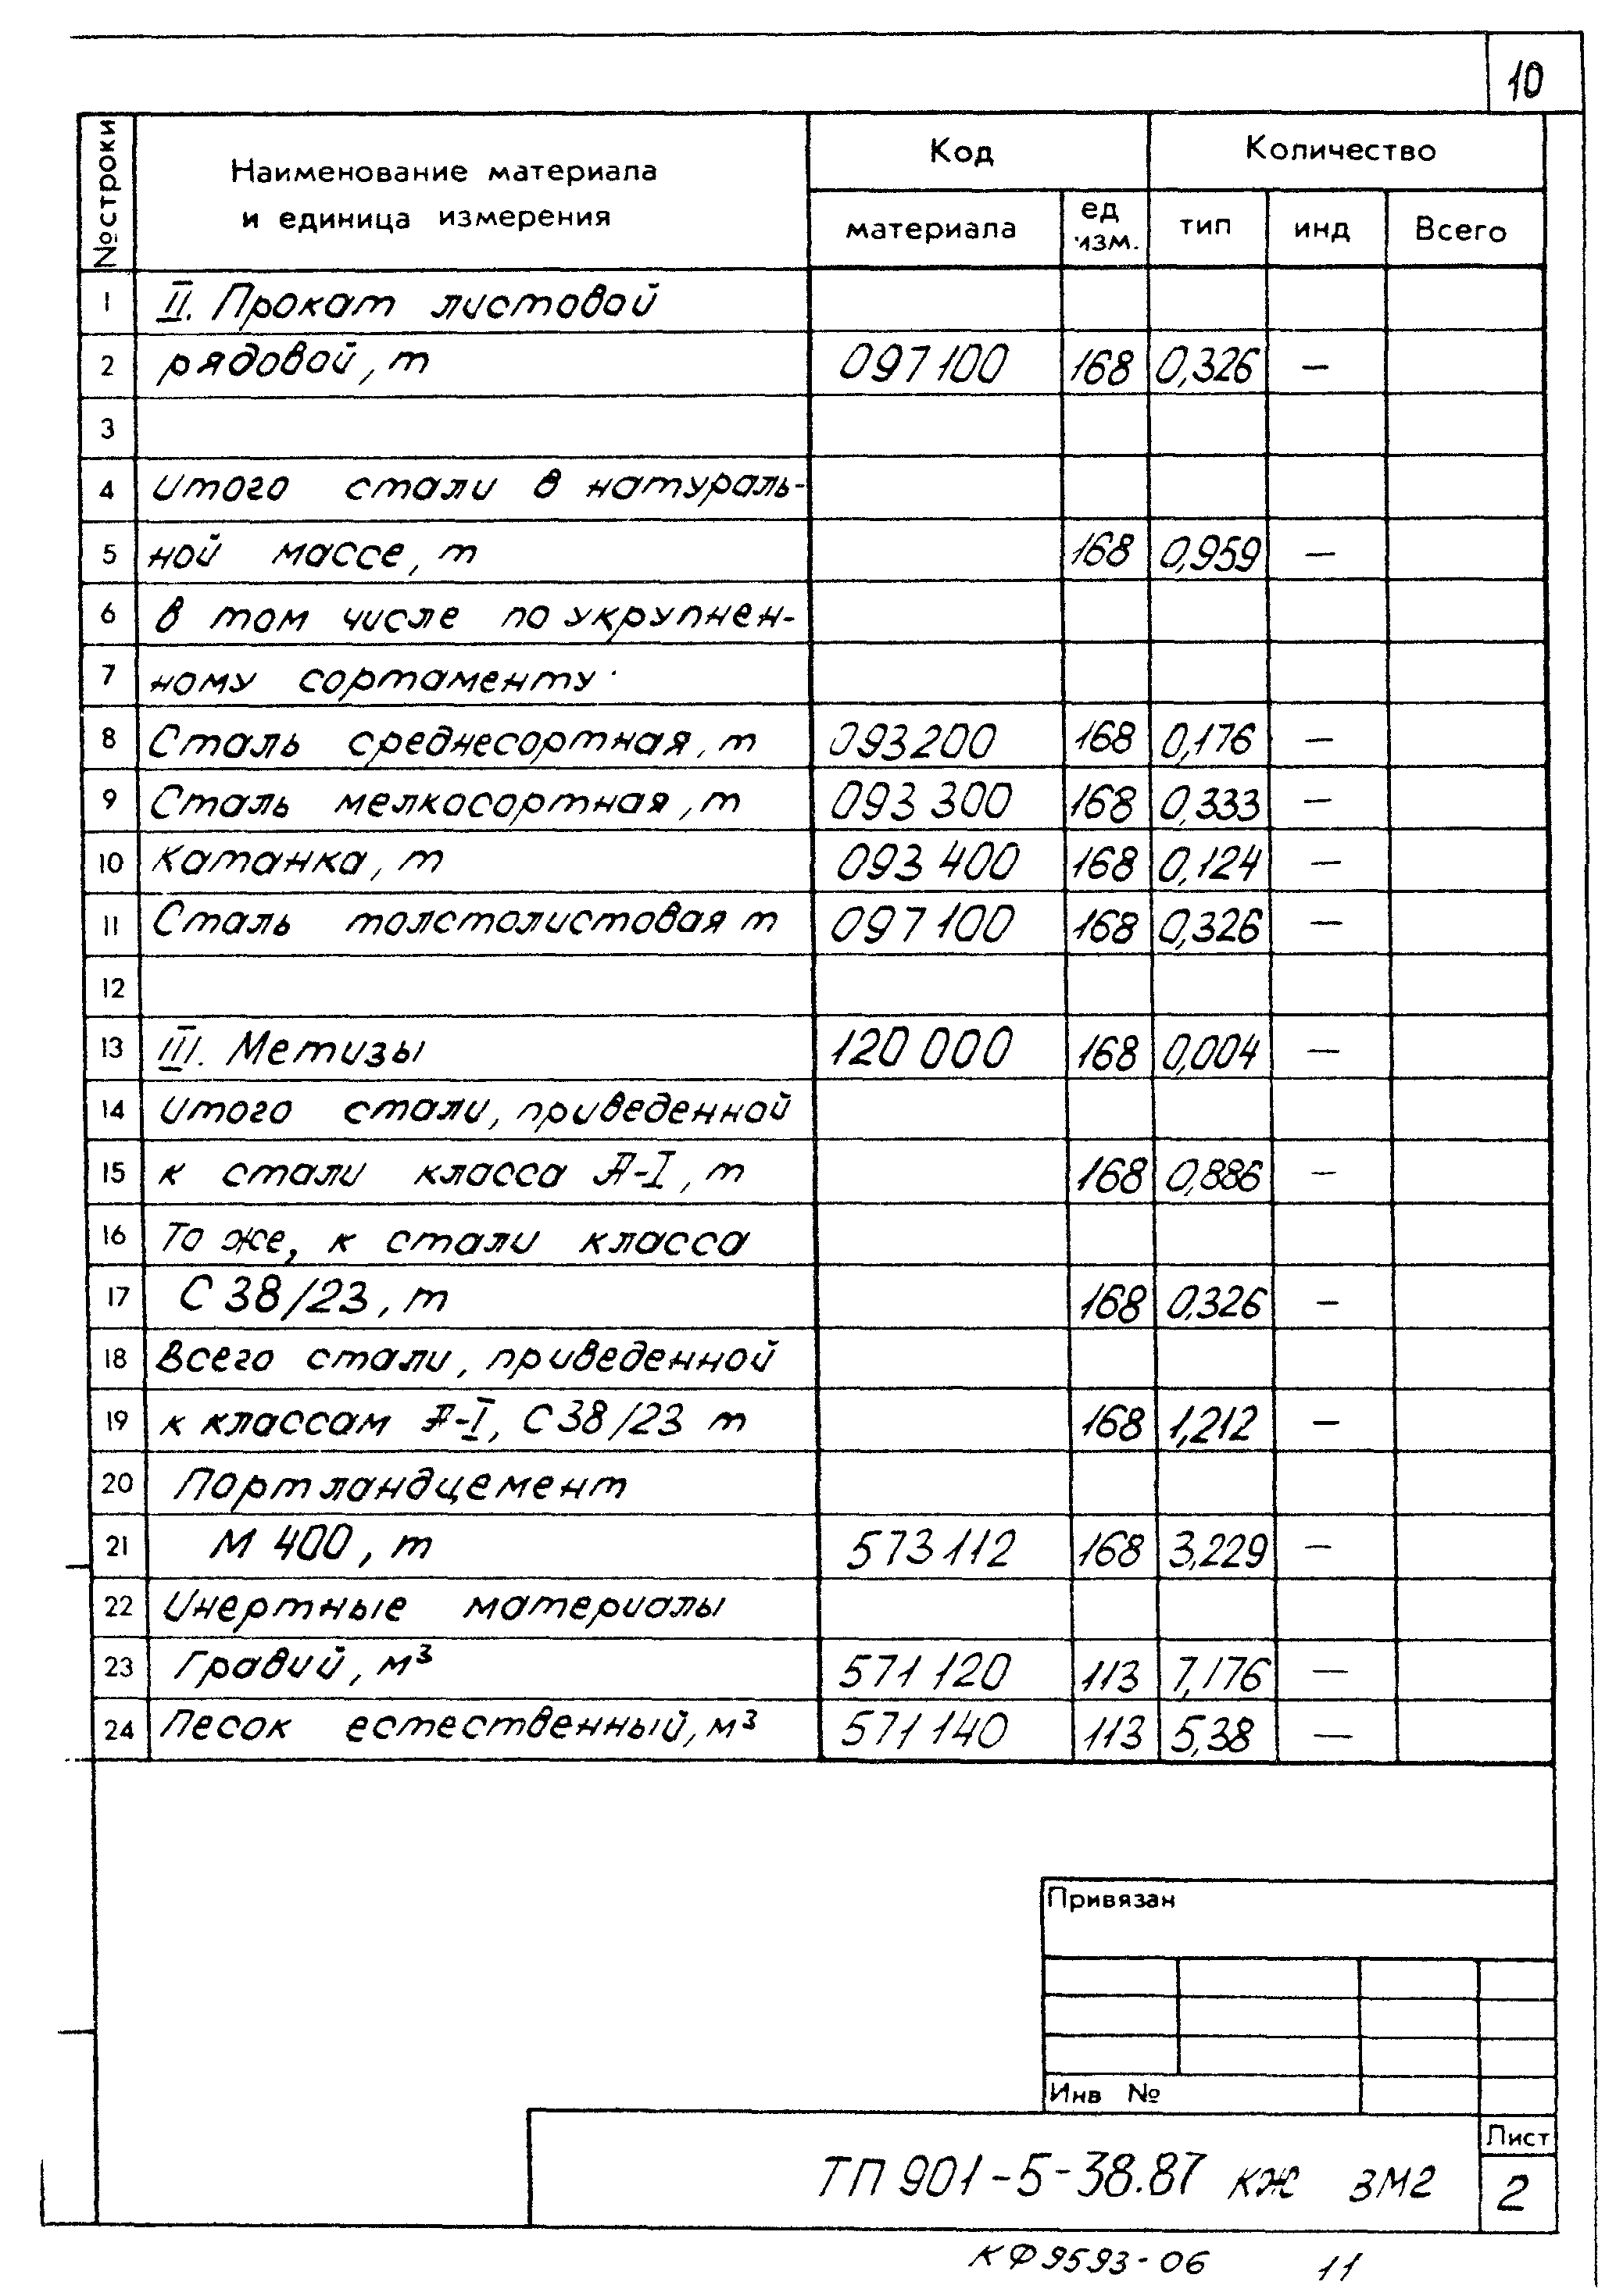 10
№ строки Наименование материала и единица измерения Код Количество
материала ед изм. тип инд Всего
1 II. Прокат листовой
2 рядовой, т 097100 168 0,326 —
3
4 итого стали в натураль-
5 ной массе, т 168 0,959 —
6 в том числе по укрупнен-
7 ному сортаменту·
8 Сталь среднесортная, т 093200 168 0,176 —
9 Сталь мелкосортная, т 093 300 168 0,333 —
10 Катанка, т 093 400 168 0,124 —
11 Сталь толстолистовая т 097100 168 0,326 —
12
13 III. Метизы 120 000 168 0,004 —
14 итого стали, приведенной
15 к стали класса А-I, т 168 0,886 —
16 То же, к стали класса
17 С 38/23, т 168 0,326 —
18 всего стали, приведенной
19 к классам А-I, С 38/23 т 168 1,212 —
20 Портландцемент
21 М 400, т 573112 168 3,229 —
22 Инертные материалы
23 Гравий, м³ 571 120 113 7,176 —
24 Песок естественный, м³ 571 140 113 5,38 —
Привязан
Инв №
ТП 901-5-38.87 КЖ ЗМ2
Лист
2
КФ 9593-06 11